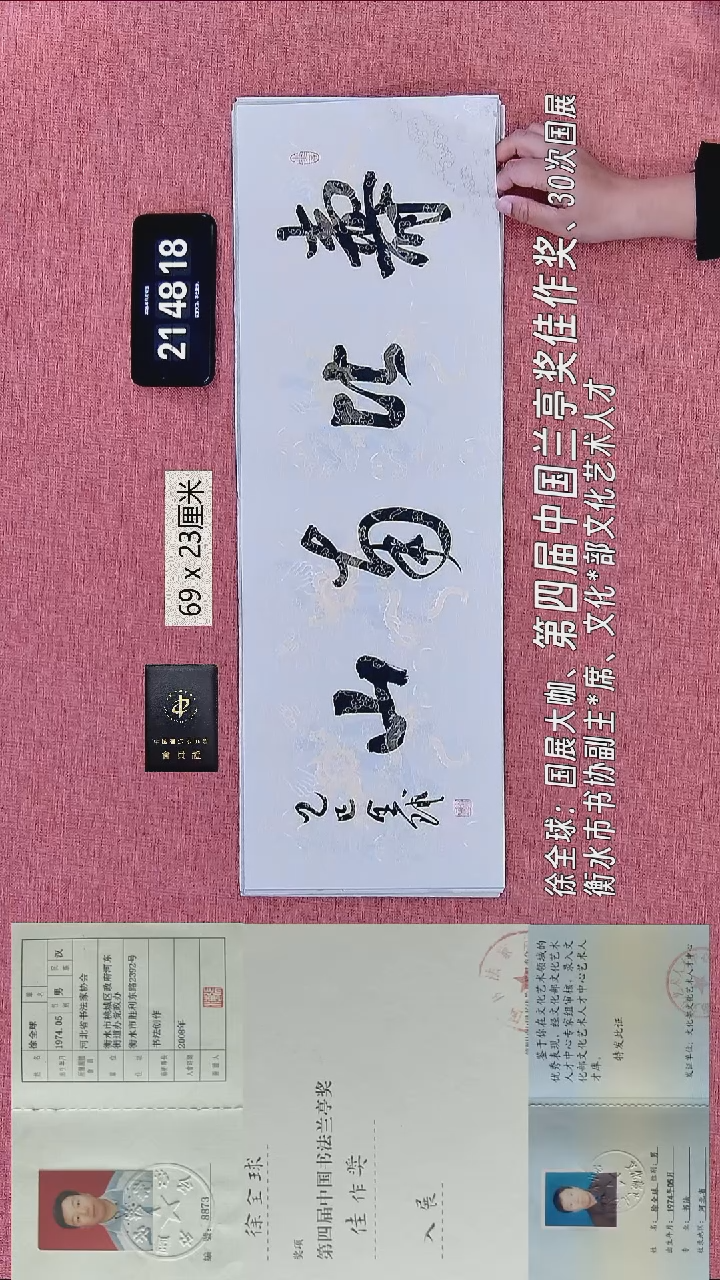 21 48 18
69 x 23厘米
壽比南山
乙巳 全球
徐全球：国展大咖、第四届中国兰亭奖佳作奖、30次国展
衡水市书协副主*席、文化*部文化艺术人才
编号: 8873
姓名 徐全球
1974.05 男 汉
河北省书法家协会
衡水市桃城区政府河东
街道办党政办
衡水市胜利东路2292号
书法创作
2008年
徐全球
奖项
第四届中国书法兰亭奖
佳作奖
入展
姓名: 徐全球 性别: 男
出生年月: 1974年05月
专业: 书法
鉴于你在文化艺术领域的
优秀表现，经文化部文化艺术
人才中心专家组审核，录入文
化部文化艺术人才中心艺术人
才库。
特发此证
发证单位: 文化部文化艺术人才中心